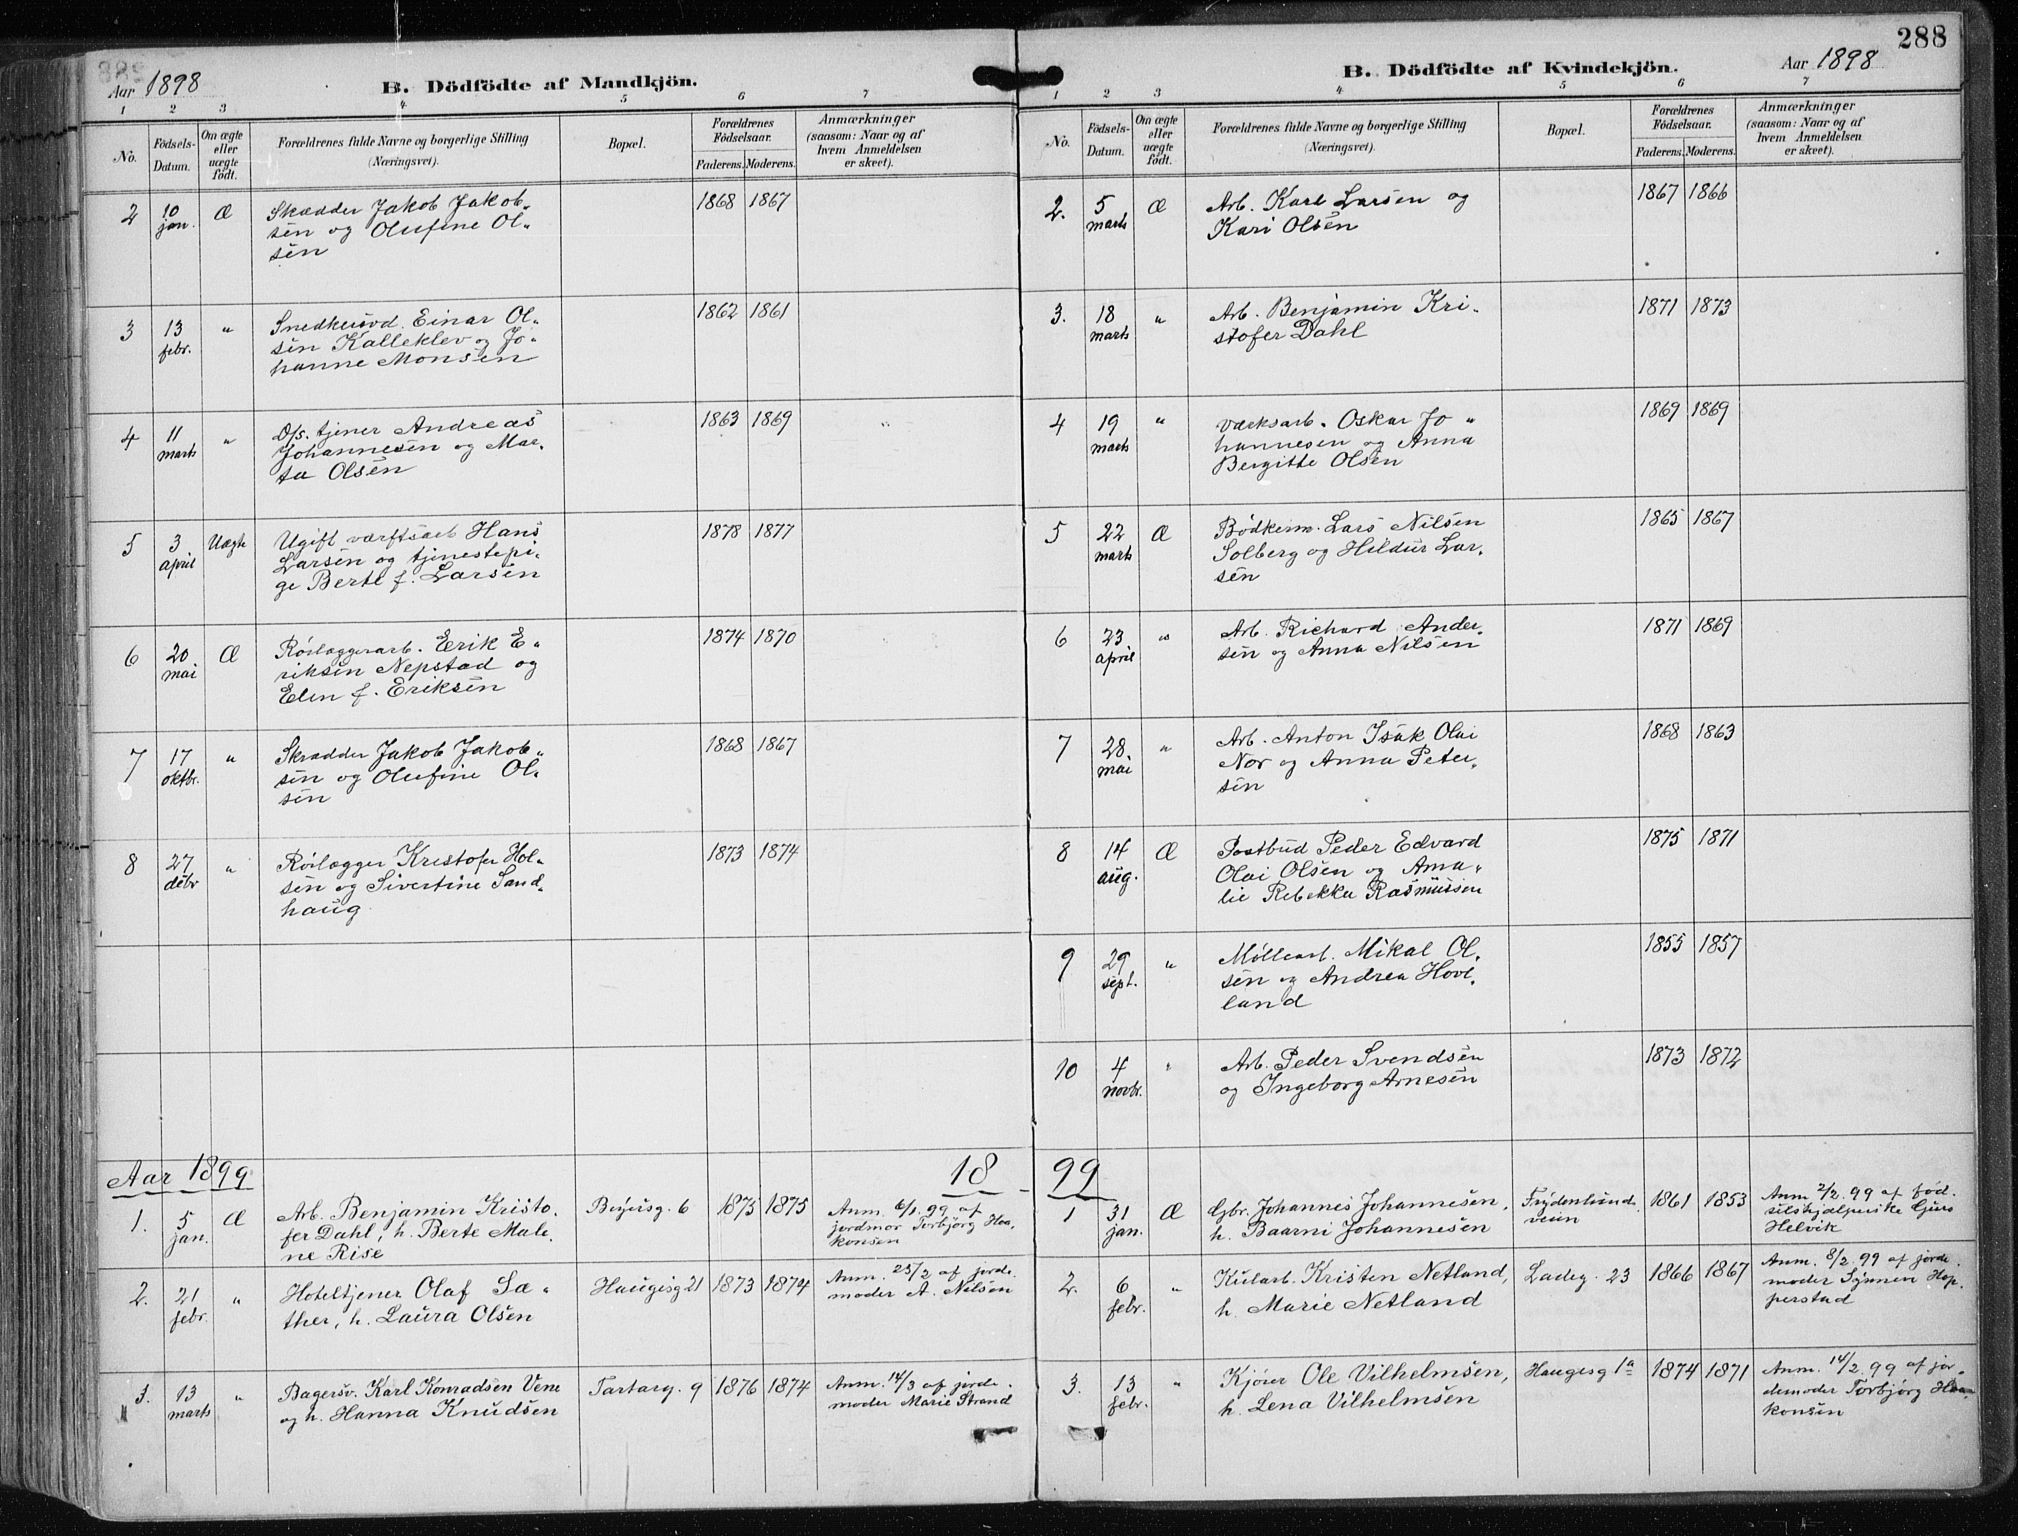 Aar 1898
B. Dödfödte af Mandkjön.
1 2 3 4 5 6 7
No.
Födsels-Datum.
Om ægte eller uægte födt.
Forældrenes fulde Navne og borgerlige Stilling (Næringsvei).
Bopæl.
Forældrenes Födselsaar.
Faderens. Moderens.
Anmærkninger (saasom: Naar og af hvem Anmeldelsen er skeet).
2 10 jan. Æ Skrædder Jakob Jakob- 1868 1867
sen og Olufine Ol-
sen
3 13 febr. " Snedkersvd. Einar Ol- 1862 1861
sen Kalleklev og Jo-
hanne Monsen
4 11 marts " D/s. tjener Andreas 1863 1869
Johannesen og Mar-
ta Olsen
5 3 april Uægte Ugift værftsarb Hans 1878 1877
Larsen og tjenestepi-
ge Berte f. Larsen
6 20 mai Æ Rørlæggerarb. Erik E- 1874 1870
riksen Nepstad og
Elen f. Eriksen
7 17 oktbr. " Skrædder Jakob Jakob- 1868 1867
sen og Olufine Ol-
sen
8 27 debr " Rørlægger Kristofer Hol- 1873 1874
sen og Sivertine Sand-
haug.
Aar 1899
18
1. 5 jan. Æ Arb. Benjamin Kristo- Beyersg. 6 1873 1875 Anm. 6/1. 99 af
fer Dahl, h. Berte Male- jordmor Torbjørg Haa-
ne Rise konsen
2. 21 febr. " Hoteltjener Olaf Sæ- Haugesg 21 1873 1874 Anm. 25/2 af jorde-
ther, h. Laura Olsen moder A. Nilsen
3. 13 marts " Bagersv. Karl Konradsen Vene Tartarg. 9 1876 1874 Anm. 14/3 af jorde-
og h. Hanna Knudsen moder Marie Strand
288
B. Dödfödte af Kvindekjön.
Aar 1898
1 2 3 4 5 6 7
No.
Födsels-Datum.
Om ægte eller uægte födt.
Forældrenes fulde Navne og borgerlige Stilling (Næringsvei).
Bopæl.
Forældrenes Födselsaar.
Faderens. Moderens.
Anmærkninger (saasom: Naar og af hvem Anmeldelsen er skeet).
2. 5 marts Æ Arb. Karl Larsen og 1867 1866
Kari Olsen
3. 18 marts " Arb. Benjamin Kri- 1871 1873
stofer Dahl
4 19 marts " Værksarb. Oskar Jo- 1869 1869
hannesen og Anna
Bergitte Olsen
5 22 marts Æ Bødkerm. Lars Nilsen 1865 1867
Solberg og Hildur Lar-
sen
6 23 april " Arb. Richard Ander- 1871 1869
sen og Anna Nilsen
7 28. mai " Arb. Anton Isak Olai 1868 1863
Nor og Anna Peter-
sen
8 14 aug. Æ Postbud Peder Edvard 1875 1871
Olai Olsen og Ama-
lie Rebekka Rasmussen
9 29 sept. " Møllearb. Mikal Ol- 1855 1857
sen og Andrea Hov-
land
10 4 novbr. " Arb. Peder Svendsen 1873 1872
og Ingeborg Arnesen
99
1 31 jan. Æ Gbr. Johannes Johannesen, Frydenlunds 1861 1853 Anm. 2/2. 99 af fød-
h. Baarni Johannesen veien selshjælperske Guro
Helvik
2. 6 febr. " Kularb. Kristen Netland, Ladeg. 23 1866 1867 Anm. 8/2 99 af jorde-
h. Marie Netland moder Synnen Hop-
perstad
3. 13 febr. " Kjører Ole Vilhelmsen, Haugesg 1a 1874 1871 Anm. 14/2 99 af jor-
h. Lena Vilhelmsen demoder Torbjørg Haa-
konsen